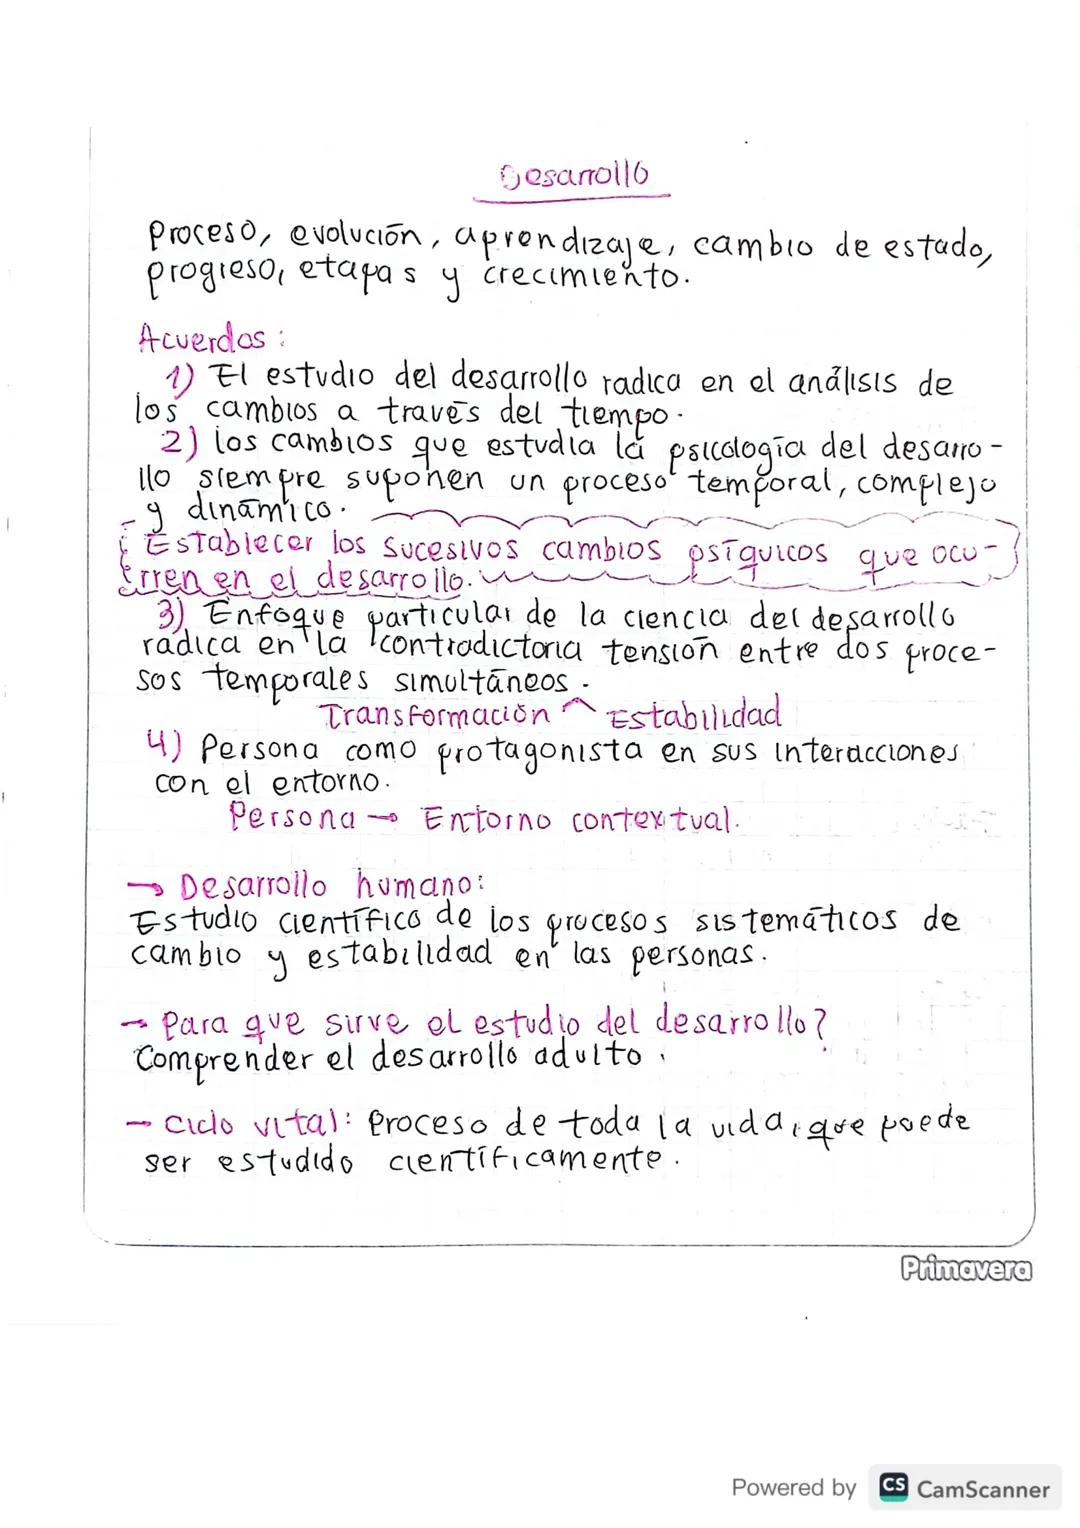 Desarrollo
Proceso, evolución, aprendizaje, cambio de estado,
progreso, etapas y crecimiento.
Acuerdos:
1) El estudio del desarrollo radica en el análisis de
los cambios a través del tiempo.
2) los cambios que estudia la psicología del desarro-
llo siempre suponen un proceso temporal, complejo
y dinámico.
Establecer los sucesivos cambios psíquicos que ocu-
rren en el desarrollo.
3) Enfoque particular de la ciencia del desarrollo
radica en la contradictoria tensión entre dos proce-
sos temporales simultáneos.
Transformación ^ Estabilidad
4) Persona como protagonista en sus interacciones
con el entorno.
Persona → Entorno contextual.
→ Desarrollo humano:
Estudio científico de los procesos sistemáticos de
cambio y estabilidad en las personas.
→ Para que sirve el estudio del desarrollo?
Comprender el desarrollo adulto.
→ Ciclo vital: Proceso de toda la vida, que puede
ser estudido científicamente.
Primavera
Powered by CS CamScanner